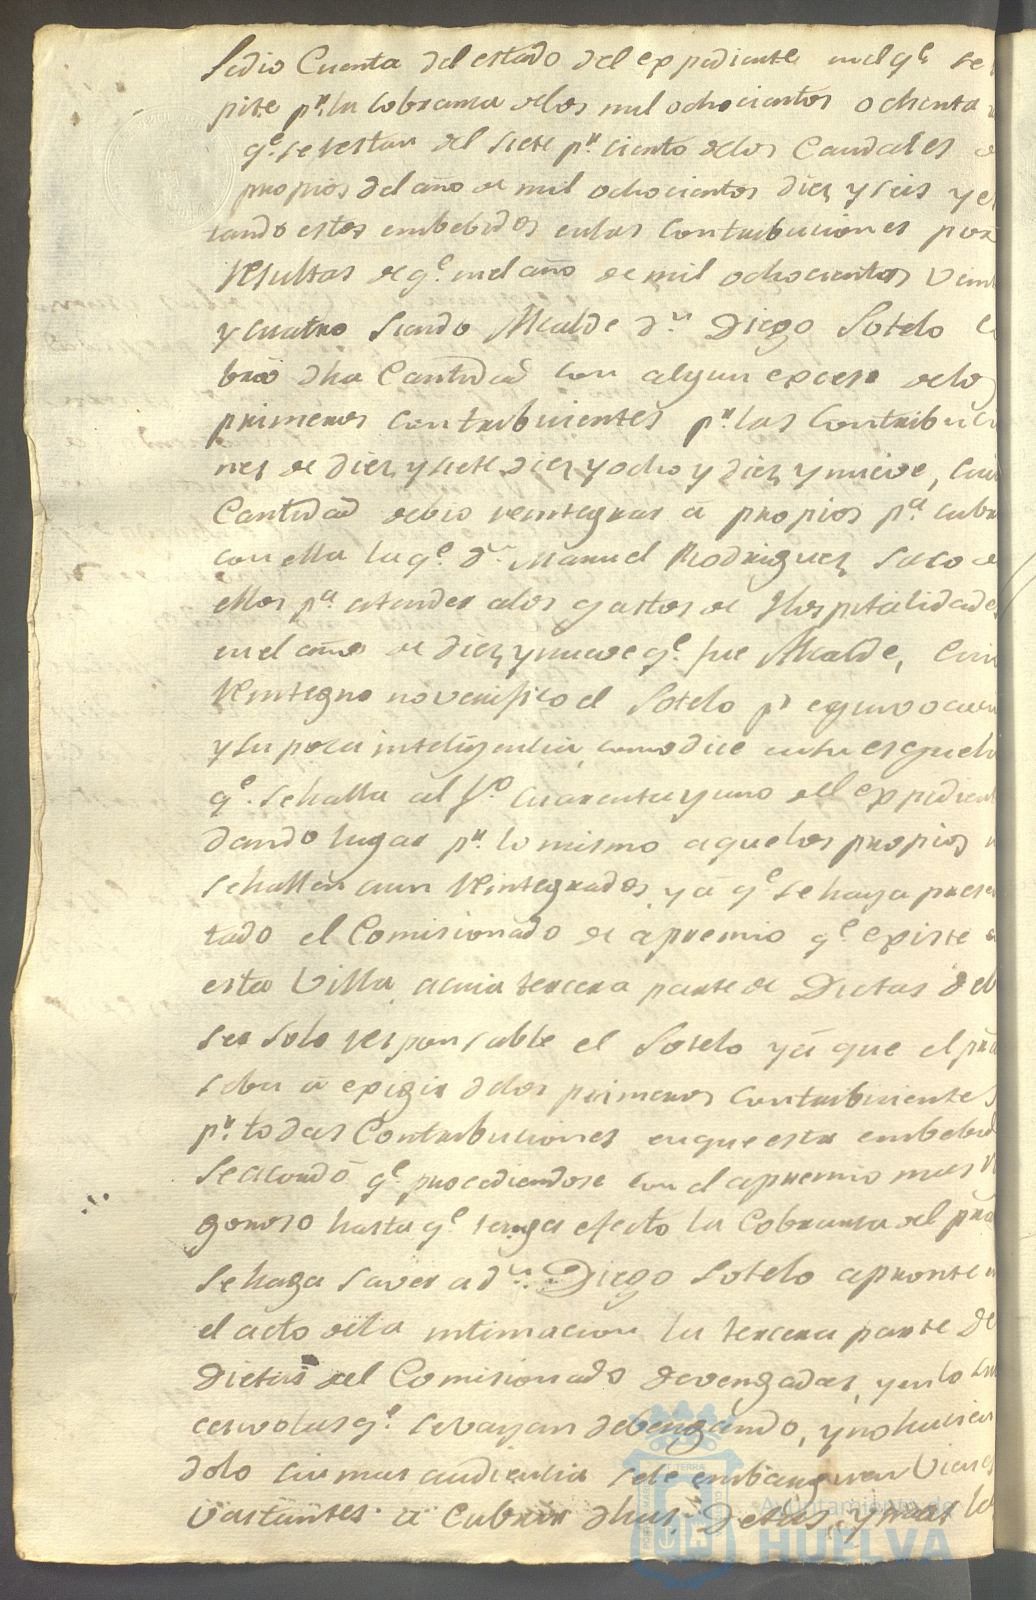 Se dio Cuenta del estado del expediente en el qe. se
pite pr. la cobranza de los mil ochocientos ochenta
qe. se restan del siete pr. ciento de los Caudales de
propios del año de mil ochocientos diez y seis y es
tando estos embebidos en las Contribuciones por
resultas de qe. en el año de mil ochocientos Veint
y cuatro siendo Alcalde Dn. Diego Sotelo co
bró dha Cantidad con algun exceso de los
primeros contribuientes pr. las contribucio
nes de diez y siete diez y ocho y diez y nueve, cuia
Cantidad debio reintegrar á propios pa. cubrir
con ella la qe. Dn. Manuel Rodriguez saco de
ellos pa. atender a los gastos de Hospitalidades
en el año de diez y nueve qe. fue Alcalde, cuio
Reintegro no verifico el Sotelo pr equivocacion
y su poca inteligencia, como dice en su esquela
qe. se halla al fo. cuarenta y uno del expediente
dando lugar pr. lo mismo a que los propios n
se hallen aun Reintegrados, y á qe. se haya presen
tado el Comisionado de apremio qe. existe en
esta Villa, a cuia tercera parte de Dietas deb
ser solo responsable el Sotelo y á que el prâl
se ba á exigir de los primeros contribuientes
pr. todas Contribuciones en que esta embebid
Se acordó qe. procediendose con el apremio mas ri
goroso hasta qe. tenga efecto la Cobranza del prâl
se haga saver a Dn. Diego Sotelo apronte en
el acto de la intimacion la tercera parte de
Dietas del Comisionado devengadas, y en lo su
cesivo las qe. se vayan debengando, y no hacien
dolo sin mas audiencia se le embarguen Vienes
vastantes a Cubrir dhas. Dietas, y mas las
Ayuntamiento de
HUELVA